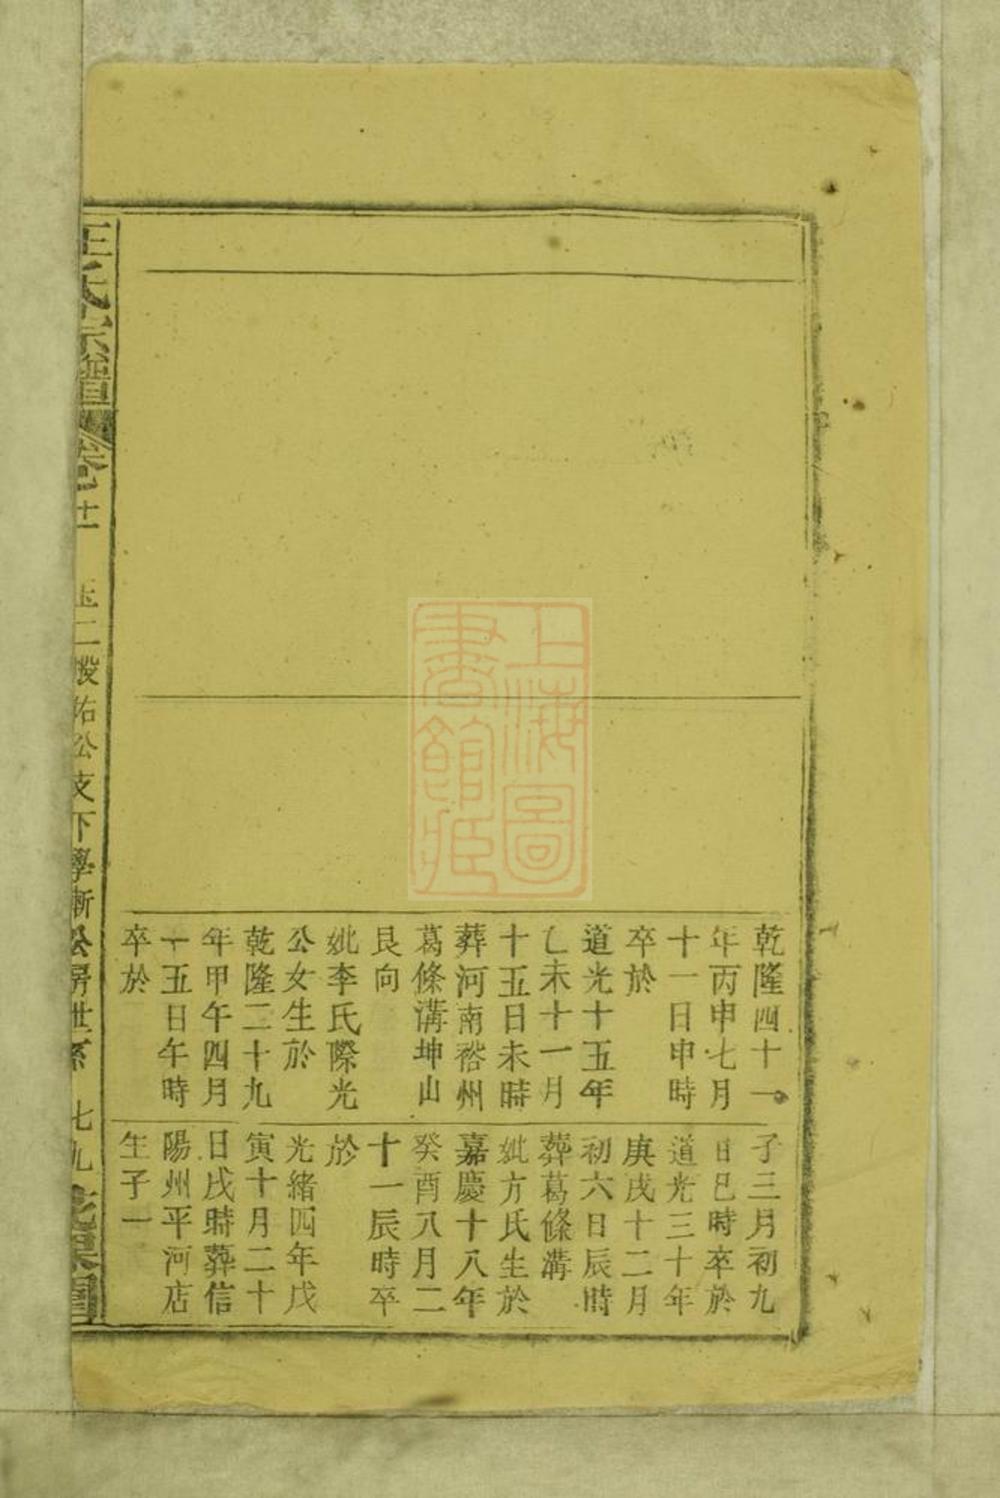 乾隆四十一
年丙申七月
十一日申時
卒於
道光十五年
乙未十一月
十五日未時
葬河南裕州
葛條溝坤山
艮向
妣李氏際光
公女生於
乾隆二十九
年甲午四月
十五日午時
卒於
子三月初九
日巳時卒於
道光三十年
庚戌十二月
初六日辰時
葬葛條溝
妣方氏生於
嘉慶十八年
癸酉八月二
十一辰時卒
於
光緒四年戊
寅十月二十
日戌時葬信
陽州平河店
生子一
王氏宗譜 卷十一 玉二股祐公支下學漸公房世系 七九
上海圖
書館藏